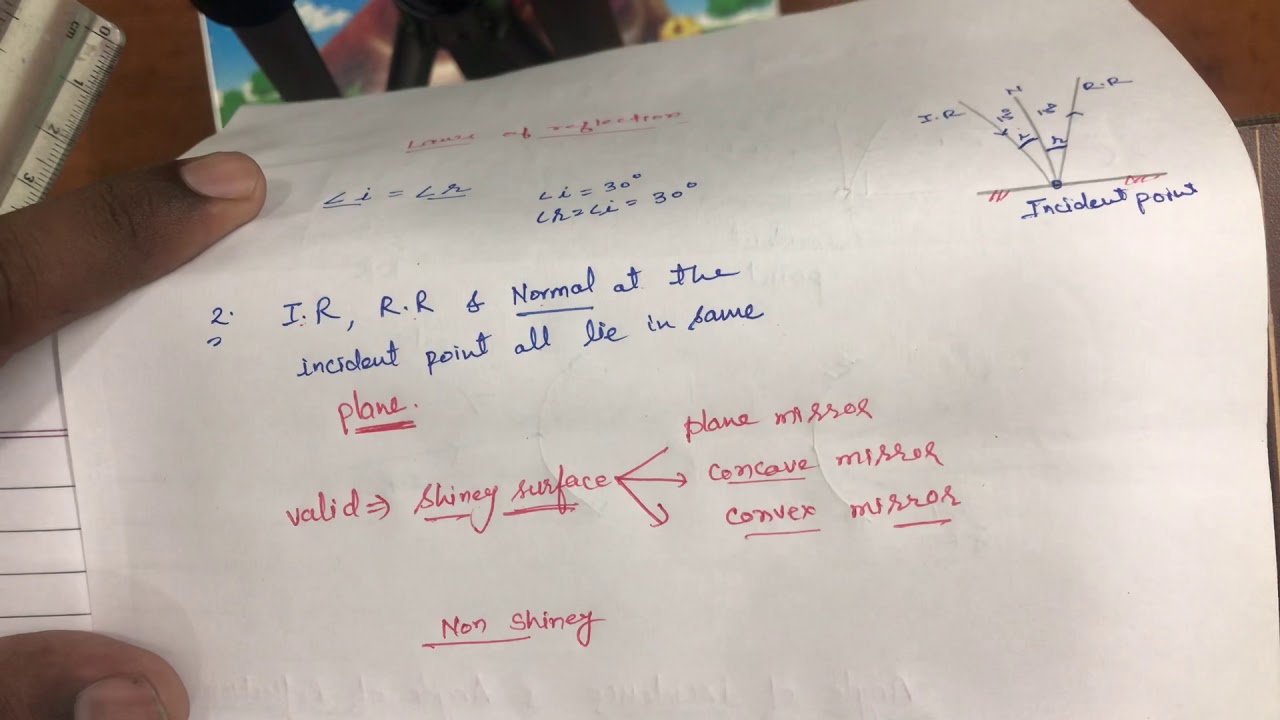 Laws of reflection
I.R
N
R.R
i
r
Incident point
∠i = ∠r
∠i = 30°
∠r = ∠i = 30°
2. I.R, R.R & Normal at the
incident point all lie in same
plane.
valid ⇒ Shiney surface
plane mirror
concave mirror
convex mirror
Non shiney
cm
0
1
2
3